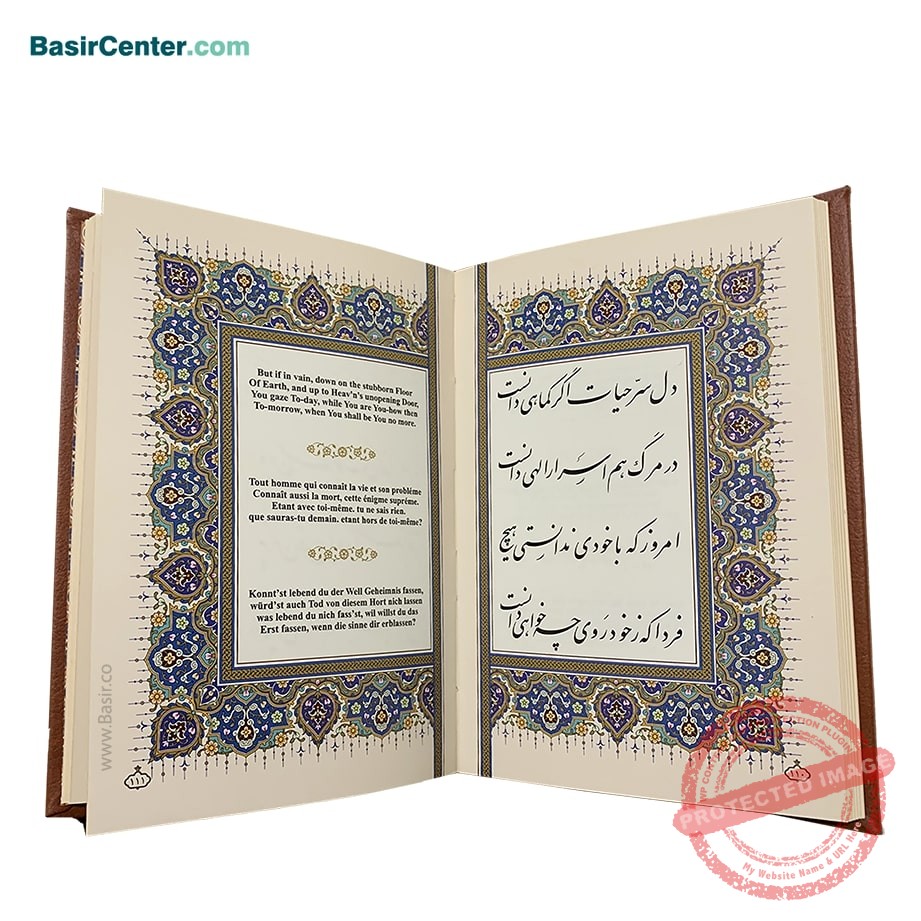 BasirCenter.com
But if in vain, down on the stubborn Floor
Of Earth, and up to Heav'n's unopening Door,
You gaze To-day, while You are You-how then
To-morrow, when You shall be You no more.
Tout homme qui connaît la vie et son problème
Connaît aussi la mort, cette énigme suprême.
Etant avec toi-même. tu ne sais rien.
que sauras-tu demain. etant hors de toi-même?
Konnt'st lebend du der Well Geheimnis fassen,
würd'st auch Tod von diesem Hort nich lassen
was lebend du nich fass'st, wil willst du das
Erst fassen, wenn die sinne dir erblassen?
www.Basir.co
۱۱۱
دل سرّ حیات اگر کماهی دانست
در مرگ هم اسرار الهی دانست
امروز که با خودی ندانستی هیچ
فردا که ز خود روی چه خواهی دانست
۱۱۰
PROTECTED IMAGE
My Website Name & URL Here